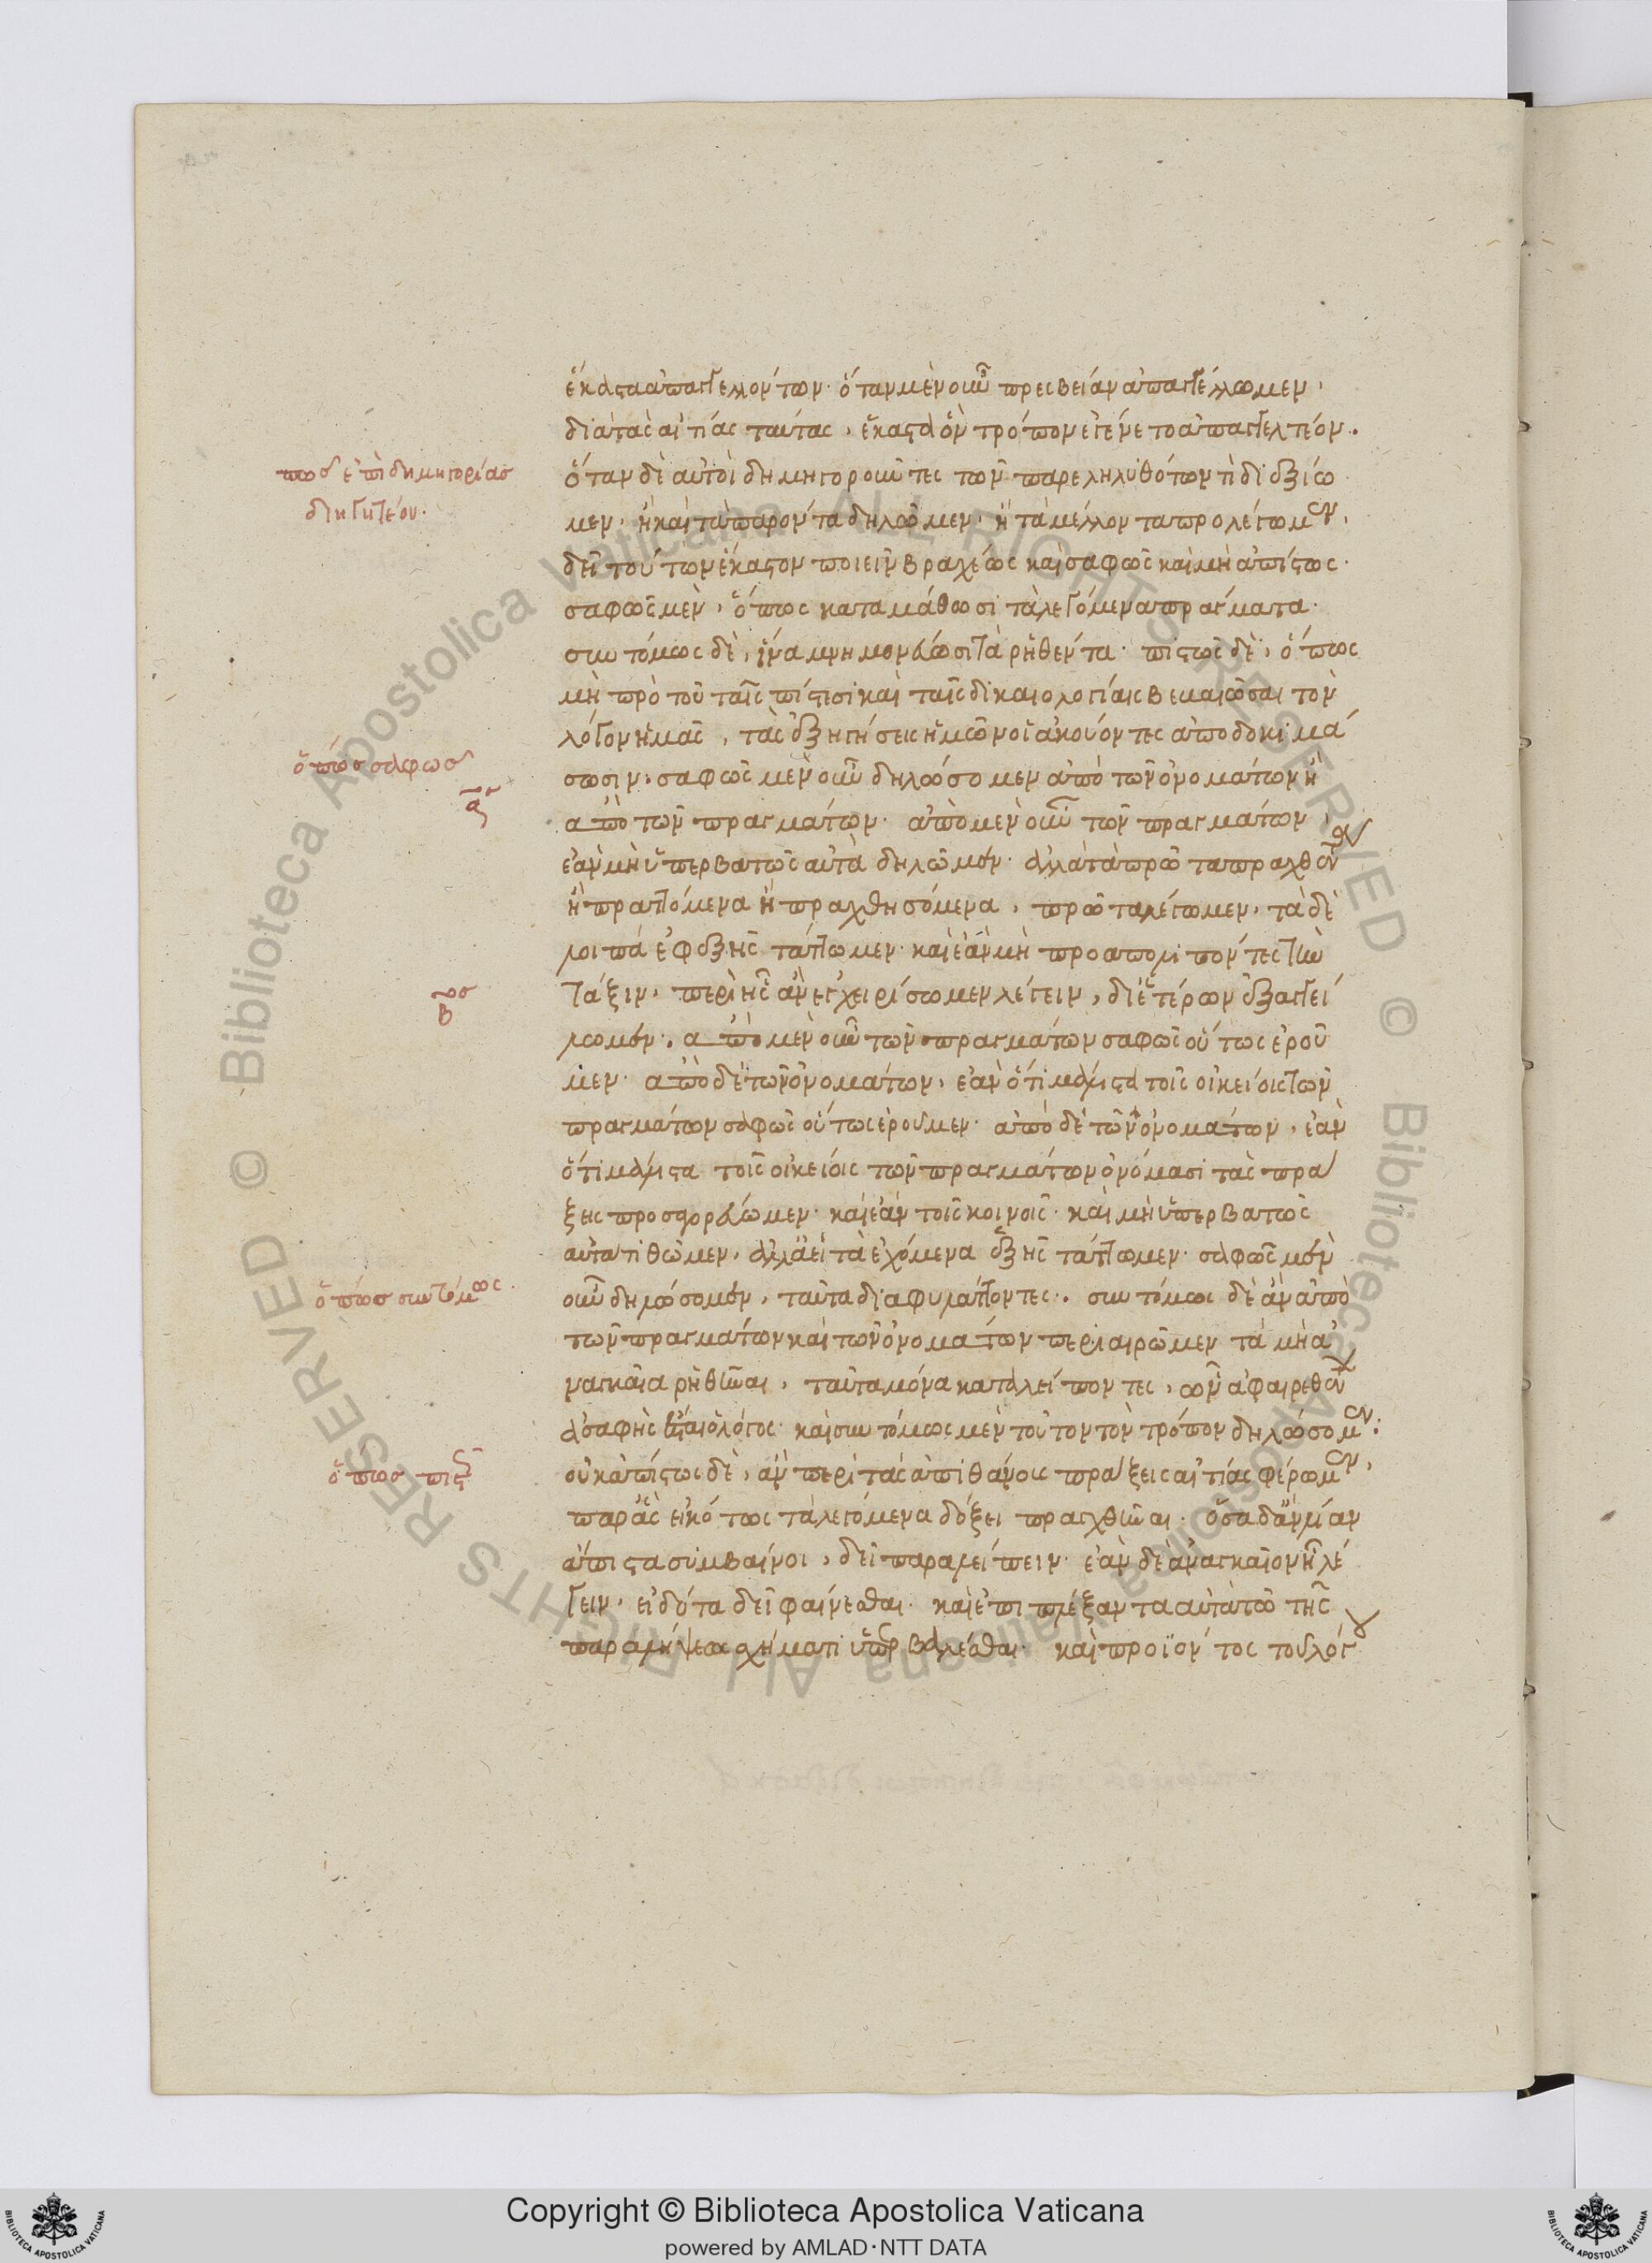 ἕκαστα ἀπαγγελλόντων· ὅταν μὲν οὖν πρεσβείαν ἀπαγγέλλωμεν,
διὰ τὰς αἰτίας ταύτας, ἕκαστα ὃν τρόπον ἐγένετο ἀπαγγελτέον.
πῶς ἐπὶ δημηγορίας
διηγητέον.
ὅταν δὲ αὐτοὶ δημηγοροῦντες τῶν παρεληλυθότων τι διεξίω
μεν, ἢ καὶ τὰ παρόντα δηλῶμεν, ἢ τὰ μέλλοντα προλέγωμεν,
δεῖ τούτων ἕκαστον ποιεῖν βραχέως καὶ σαφῶς καὶ μὴ ἀπίστως·
σαφῶς μὲν, ὅπως καταμάθωσι τὰ λεγόμενα πράγματα·
συντόμως δὲ, ἵνα μνημονεύωσι τὰ ῥηθέντα· πιστῶς δὲ, ὅπως
μὴ πρὸ τοῦ ταῖς πίστεσι καὶ ταῖς δικαιολογίαις βεβαιῶσαι τὸν
λόγον ἡμᾶς, τὰς ἐξηγήσεις ἡμῶν οἱ ἀκούοντες ἀποδοκιμά
ὅπως σαφῶς
σωσιν. σαφῶς μὲν οὖν δηλώσομεν ἀπὸ τῶν ὀνομάτων ἢ
ἀπὸ τῶν πραγμάτων· ἀπὸ μὲν οὖν τῶν πραγμάτων,
ἐὰν μὴ ὑπερβατῶς αὐτὰ δηλῶμεν· ἀλλὰ τὰ πρῶτα πραχθέντα
ἢ πραττόμενα ἢ πραχθησόμενα, πρῶτα λέγωμεν, τὰ δὲ
λοιπὰ ἐφεξῆς τάττωμεν· καὶ ἐὰν μὴ προαπολιπόντες τὴν
τάξιν, περὶ ἧς ἂν ἐγχειρίσωμεν λέγειν, δι' ἑτέρων ἐξαγγεί
λωμεν. ἀπὸ μὲν οὖν τῶν πραγμάτων σαφῶς οὕτως ἐροῦ
μεν· ἀπὸ δὲ τῶν ὀνομάτων, ἐὰν ὅτι μάλιστα τοῖς οἰκείοις τῶν
πραγμάτων σαφῶς οὕτως ἐροῦμεν· ἀπὸ δὲ τῶν ὀνομάτων, ἐὰν
ὅτι μάλιστα τοῖς οἰκείοις τῶν πραγμάτων ὀνόμασι τὰς πρά
ξεις προσαγορεύωμεν· καὶ ἐὰν τοῖς κοινοῖς· καὶ μὴ ὑπερβατῶς
αὐτὰ τιθῶμεν, ἀλλ' ἀεὶ τὰ ἐχόμενα ἑξῆς τάττωμεν· σαφῶς μὲν
ὅπως συντόμως.
οὖν δηλώσομεν, ταῦτα διαφυλάττοντες. συντόμως δὲ ἂν ἀπὸ
τῶν πραγμάτων καὶ τῶν ὀνομάτων περιαιρῶμεν τὰ μὴ ἀ
ναγκαῖα ῥηθῆναι, ταῦτα μόνα καταλείποντες, ὧν ἀφαιρεθέντων
ἀσαφὴς ἔσται ὁ λόγος· καὶ συντόμως μὲν τοῦτον τὸν τρόπον δηλώσομεν.
ὅπως πιστῶς
οὐκ ἀπίστως δὲ, ἂν περὶ τὰς ἀπιθάνους πράξεις αἰτίας φέρωμεν,
παρ' ἃς εἰκότως τὰ λεγόμενα δόξει πραχθῆναι. ὅσα δ' ἂν λίαν
ἄπιστα συμβαίνοι, δεῖ παραλείπειν· ἐὰν δὲ ἀναγκαῖον ἦ λέ
γειν, εἰδότα δεῖ φαίνεσθαι· καὶ ἐπιπλέξαντα αὐτὰ τῷ τῆς
παραλήψεως σχήματι ὑπερβαλέσθαι· καὶ προϊόντος τοῦ λόγου